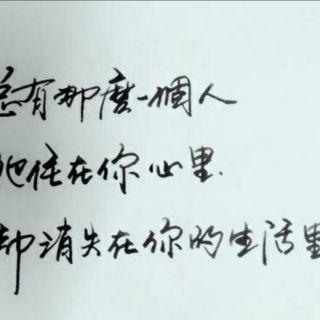 总有那麼一個人
她住在你心里.
却消失在你的生活里